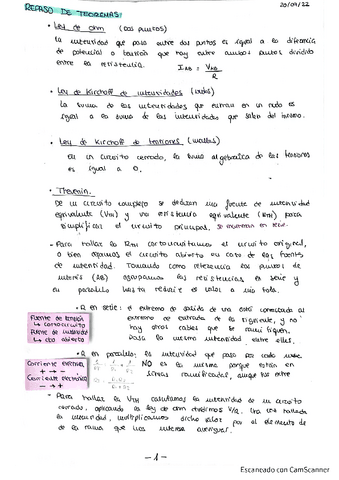 20/09/22
REPASO DE TEOREMAS:
• Ley de ohm (dos puntos)
la intensidad que pasa entre dos puntos es igual a la diferencia
de potencial o tensión que hay entre ambos puntos dividido
entre la resistencia. I_AB = V_AB / R
• Ley de Kirchoff de intensidades (nudos)
La suma de las intensidades que entran en un nudo es
igual a la suma de las intensidades que salen del mismo.
• Ley de Kirchoff de tensiones (mallas)
en un circuito cerrado, la suma algebraica de las tensiones
es igual a 0.
• Thevenin.
De un circuito complejo se de una fuente de intensidad
equivalente (VTH) y una resistencia equivalente (RTH) para
simplificar el circuito principal.
- Para hallar la RTH cortocircuitamos el circuito original,
o bien dejamos el circuito abierto en caso de las fuentes
de intensidad. Tomando como referencia los puntos de
interés (AB) agrupamos las resistencias en serie y
en paralelo hasta reducir el valor a una sola.
- R en serie: el extremo de salida de una está conectado al
extremo de entrada de la siguiente, y no
hay otros cables que se ramifiquen.
Pasa la misma intensidad entre ellas.
Fuente de tensión
↳ cortocircuito
Fuente de intensidad
↳ cto abierto
- R en paralelo: la intensidad que pasa por cada una
NO es la misma porque están en
líneas ramificadas, aunque
Corriente eléctrica
+ → -
Corriente electrónica
- → +
- Para hallar la VTH calculamos la intensidad de un circuito
cerrado, aplicando la ley de ohm dividimos V/R. Una vez hallada
la intensidad, multiplicamos dicho valor por el elemento de
de la rama que nos interesa averiguar.
- 1 -
Escaneado con CamScanner